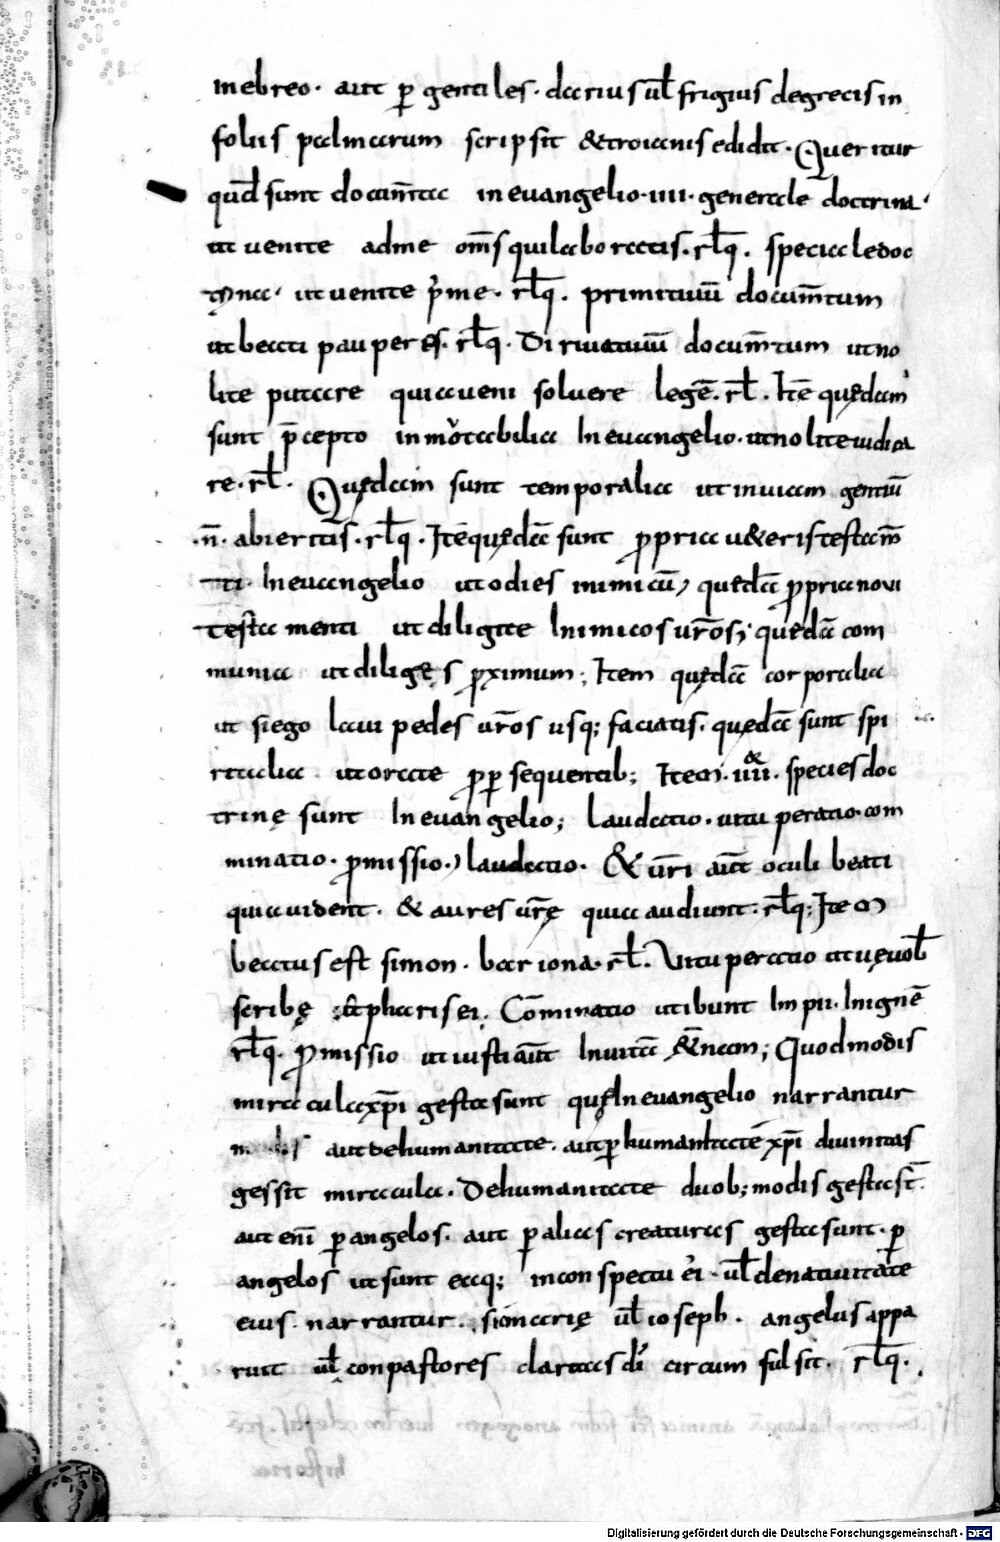 inebreo. aut ꝑ gentiles. darius ul̄ frigius de grecis in
foliis palmarum scripsit &troianis edidit. Queritur
quod sunt docum̄ta in evangelio. iiii. generale doctrina
ut venite ad me om̄s qui laboratis. rl̄q. speciale doc
ut venite p̄ me. rl̄q. primitiuū docum̄tum
ut beati pauperes. rl̄q. Diriuatiuū docum̄tum ut no
lite putare quia ueni soluere legē. rl̄. Itē quędam
sunt p̄cepto Inevangelio. ut nolite iudica
re. rl̄. Quędam sunt temporalia ut in uiam gentiū
.n̄. abieritis. rl̄q. Itē quędā sunt ꝓpria u&eris testam̄
ti. In euangelio ut odies inimicū, quędā ꝓpria novi
testa menti ut diligite Inimicos ur̄os; quędā com
munia ut diliges ꝓximum; Item quędā corporalia
ut si ego laui pedes ur̄os usq; faciatis. quędā sunt spi
ritalia ut orate ꝓ ꝑsequentib; Item. iiii. species doc
trinę sunt In evangelio; laudatio. uitu peratio. com
minatio. ꝓmissio.) laudatio. & ur̄i aūt oculi beati
quia uident. & aures ur̄ę quia audiunt: rl̄q; Item
beatus est simon. bar iona. rl̄. Uitu peratio ut uę uob̄
scribę pharisei. Cōminatio ut ibunt Impii. In ignē
rl̄q. ꝓmissio ut iusti aūt In uitā &̄nam; Quod modis
miracula xp̄i gesta sunt quę In evangelio narrantur
aut de humanitate. aut ꝑ humanitatē xp̄i diuinitas
gessit miracula. De humanitate duob; modis gesta st̄.
aut eni̅ ꝑ angelos. aut ꝑ alias creaturas gesta sunt. ꝑ
angelos ut sunt eaq; in conspectu ei. ul̄ de natiuitate
eius. narrantur. ul̄ ioseph. angelus appa
ruit ul̄ con pastores claritas dī circum fulsit. rl̄q.
Digitalisierung gefördert durch die Deutsche Forschungsgemeinschaft - DFG